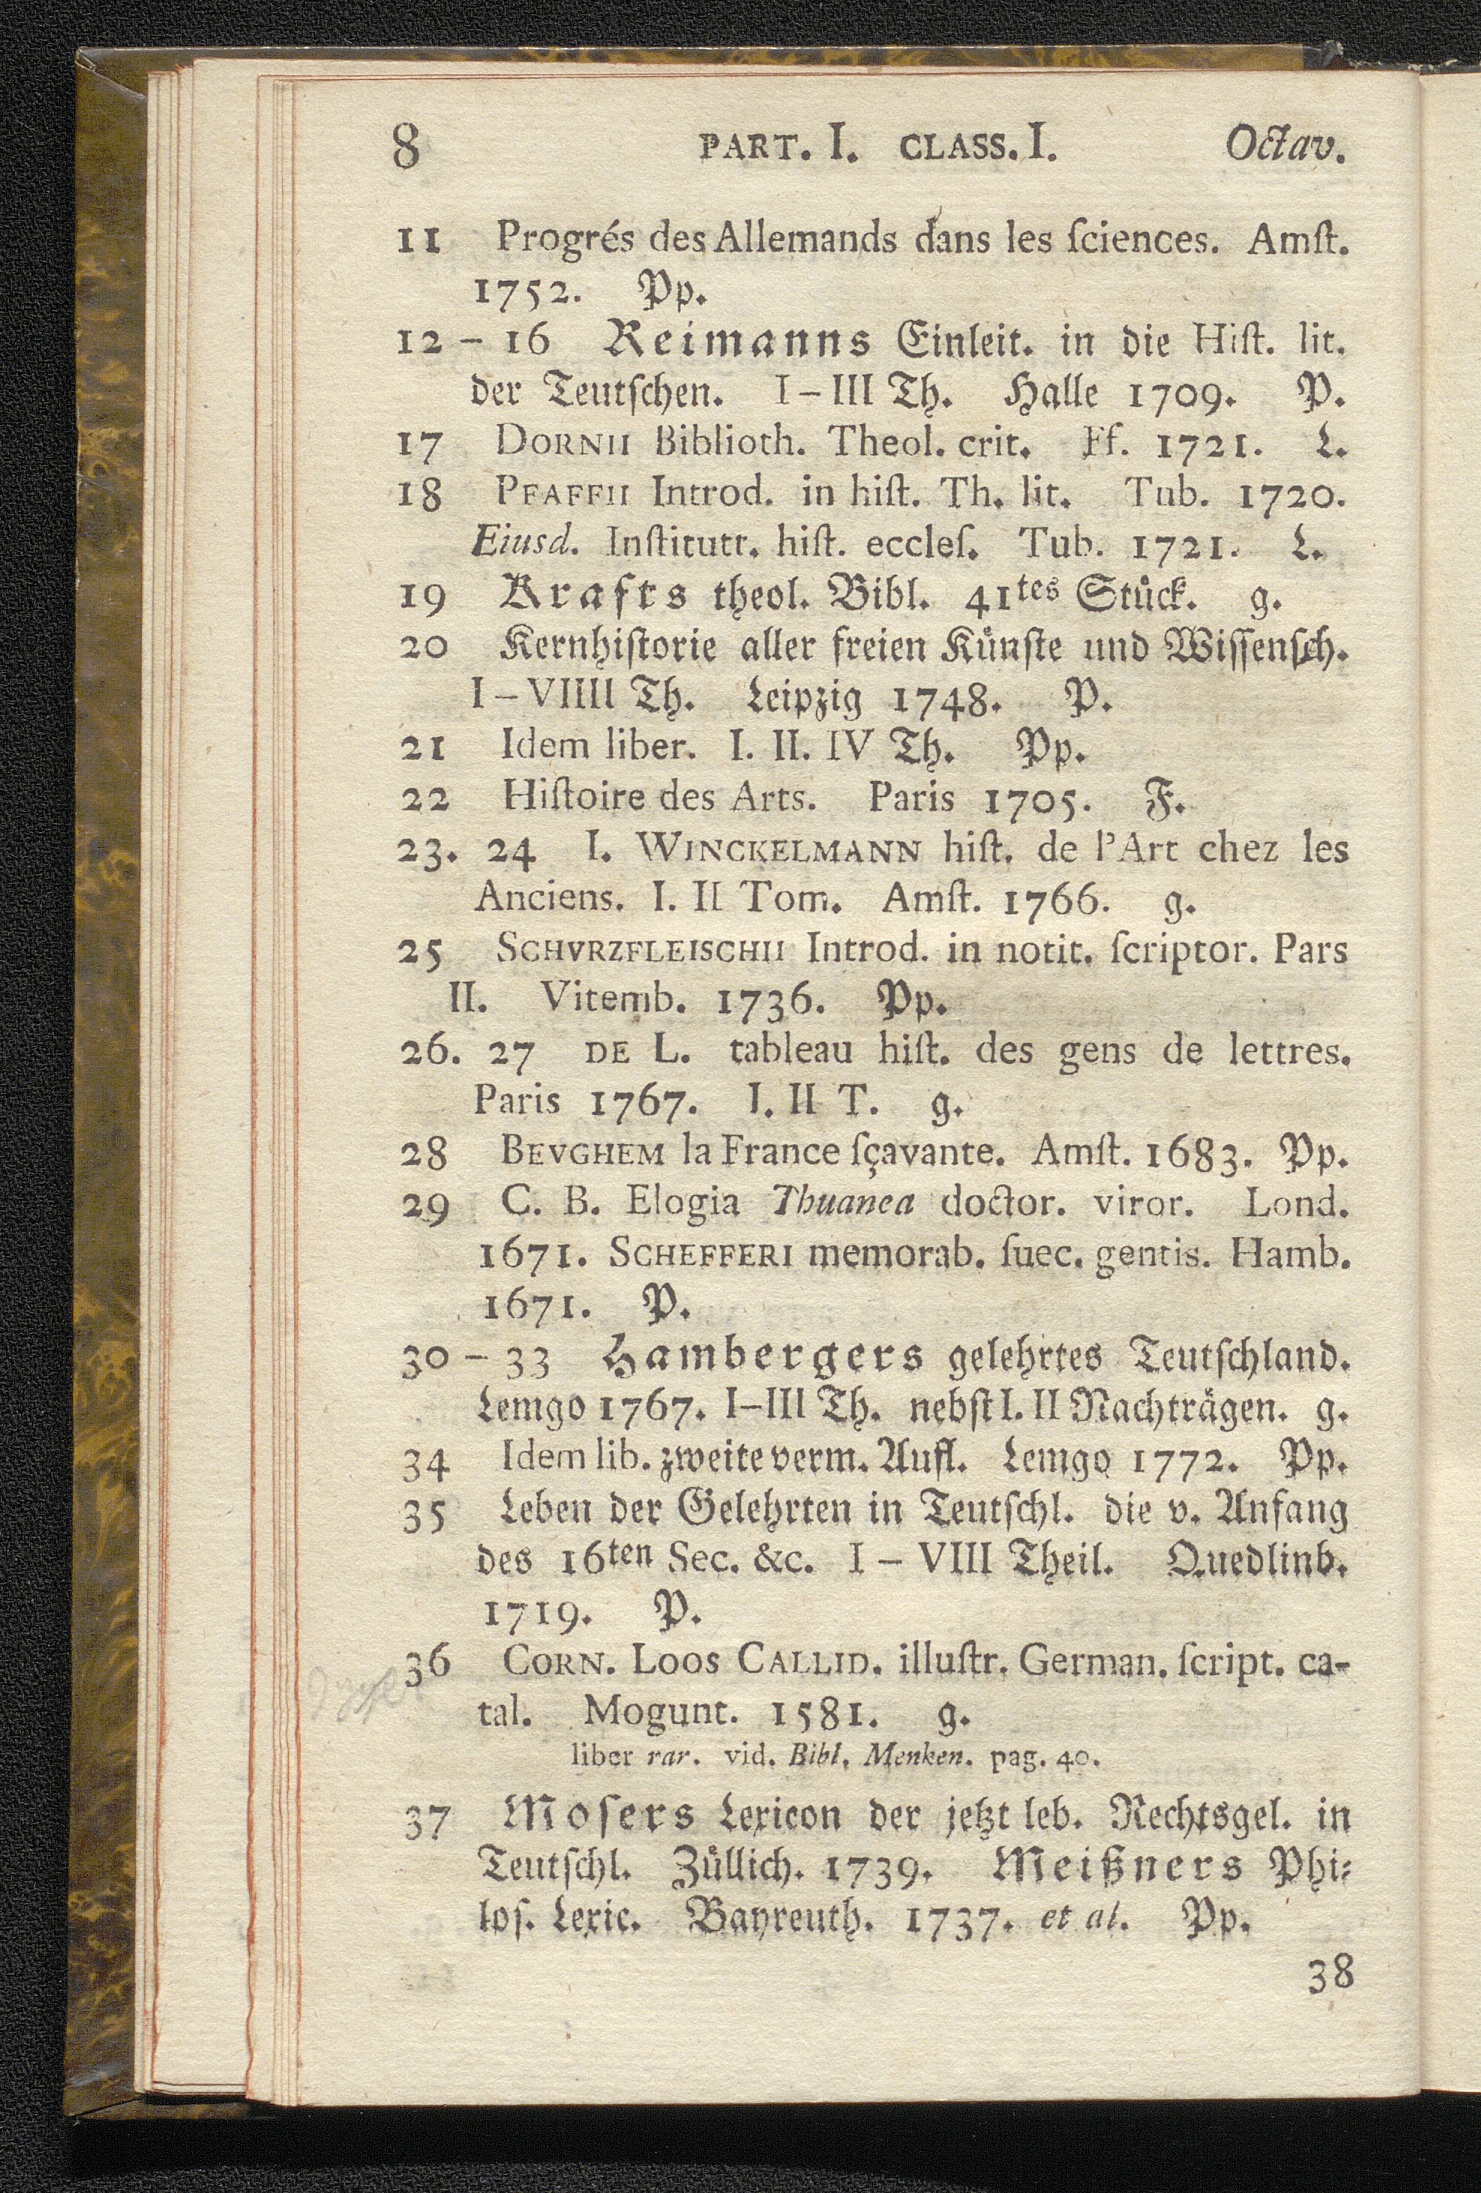 8 PART. I. CLASS. I. Octav.
11 Progrés des Allemands dans les ſciences. Amſt.
1752. Pp.
12 – 16 Reimanns Einleit. in die Hiſt. lit.
der Teutſchen. I – III Th. Halle 1709. P.
17 DORNII Biblioth. Theol. crit. Ff. 1721. L.
18 PFAFFII Introd. in hiſt. Th. lit. Tub. 1720.
Eiusd. Inſtitutt. hiſt. eccleſ. Tub. 1721. L.
19 Krafts theol. Bibl. 41tes Stuͤck. g.
20 Kernhiſtorie aller freien Kuͤnſte und Wiſſenſch.
I – VIIII Th. Leipzig 1748. P.
21 Idem liber. I. II. IV Th. Pp.
22 Hiſtoire des Arts. Paris 1705. F.
23. 24 I. WINCKELMANN hiſt. de l'Art chez les
Anciens. I. II Tom. Amſt. 1766. g.
25 SCHVRZFLEISCHII Introd. in notit. ſcriptor. Pars
II. Vitemb. 1736. Pp.
26. 27 DE L. tableau hiſt. des gens de lettres.
Paris 1767. I. II T. g.
28 BEVGHEM la France ſçavante. Amſt. 1683. Pp.
29 C. B. Elogia Thuanea doctor. viror. Lond.
1671. SCHEFFERI memorab. ſuec. gentis. Hamb.
1671. P.
30 – 33 Hambergers gelehrtes Teutſchland.
Lemgo 1767. I–III Th. nebſt I. II Nachträgen. g.
34 Idem lib. zweite verm. Aufl. Lemgo 1772. Pp.
35 Leben der Gelehrten in Teutſchl. die v. Anfang
des 16ten Sec. &c. I – VIII Theil. Quedlinb.
1719. P.
36 CORN. LOOS CALLID. illuſtr. German. ſcript. ca-
tal. Mogunt. 1581. g.
liber rar. vid. Bibl. Menken. pag. 40.
37 Moſers Lexicon der jetzt leb. Rechtsgel. in
Teutſchl. Zuͤllich. 1739. Meißners Phi-
loſ. Lexic. Bayreuth. 1737. et al. Pp.
38